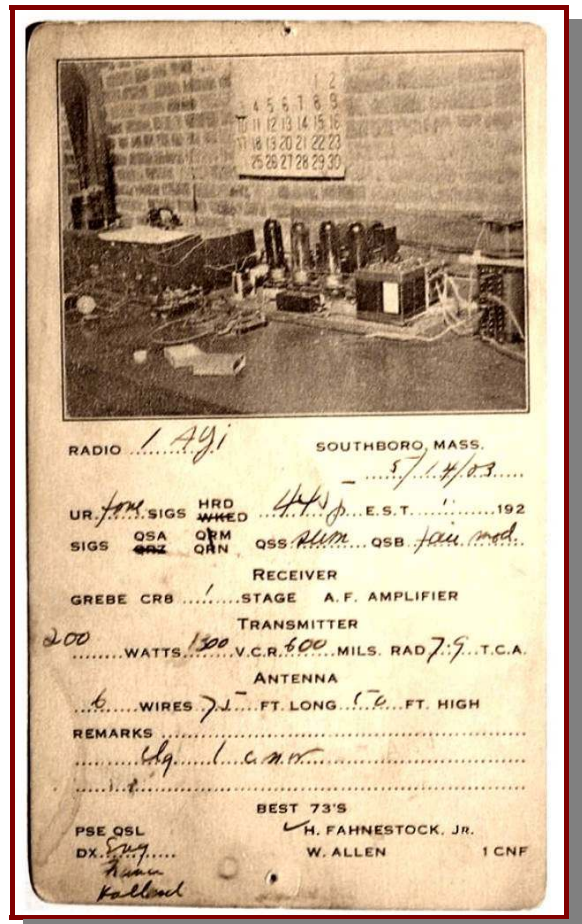 1 2
3 4 5 6 7 8 9
10 11 12 13 14 15 16
17 18 19 20 21 22 23
25 26 27 28 29 30
RADIO 1 AYJ SOUTHBORO, MASS.
5/14/23
UR tone SIGS HRD WKED E.S.T. 192
SIGS QSA QRZ QRM QRN QSS slim QSB fair mod
RECEIVER
GREBE CR8 1 STAGE A.F. AMPLIFIER
TRANSMITTER
200 WATTS 1500 V.C.R. 600 MILS. RAD 7.9 T.C.A.
ANTENNA
6 WIRES 75 FT. LONG 50 FT. HIGH
REMARKS
BEST 73'S
PSE QSL H. FAHNESTOCK, JR.
DX Eng W. ALLEN 1 CNF
France
Holland